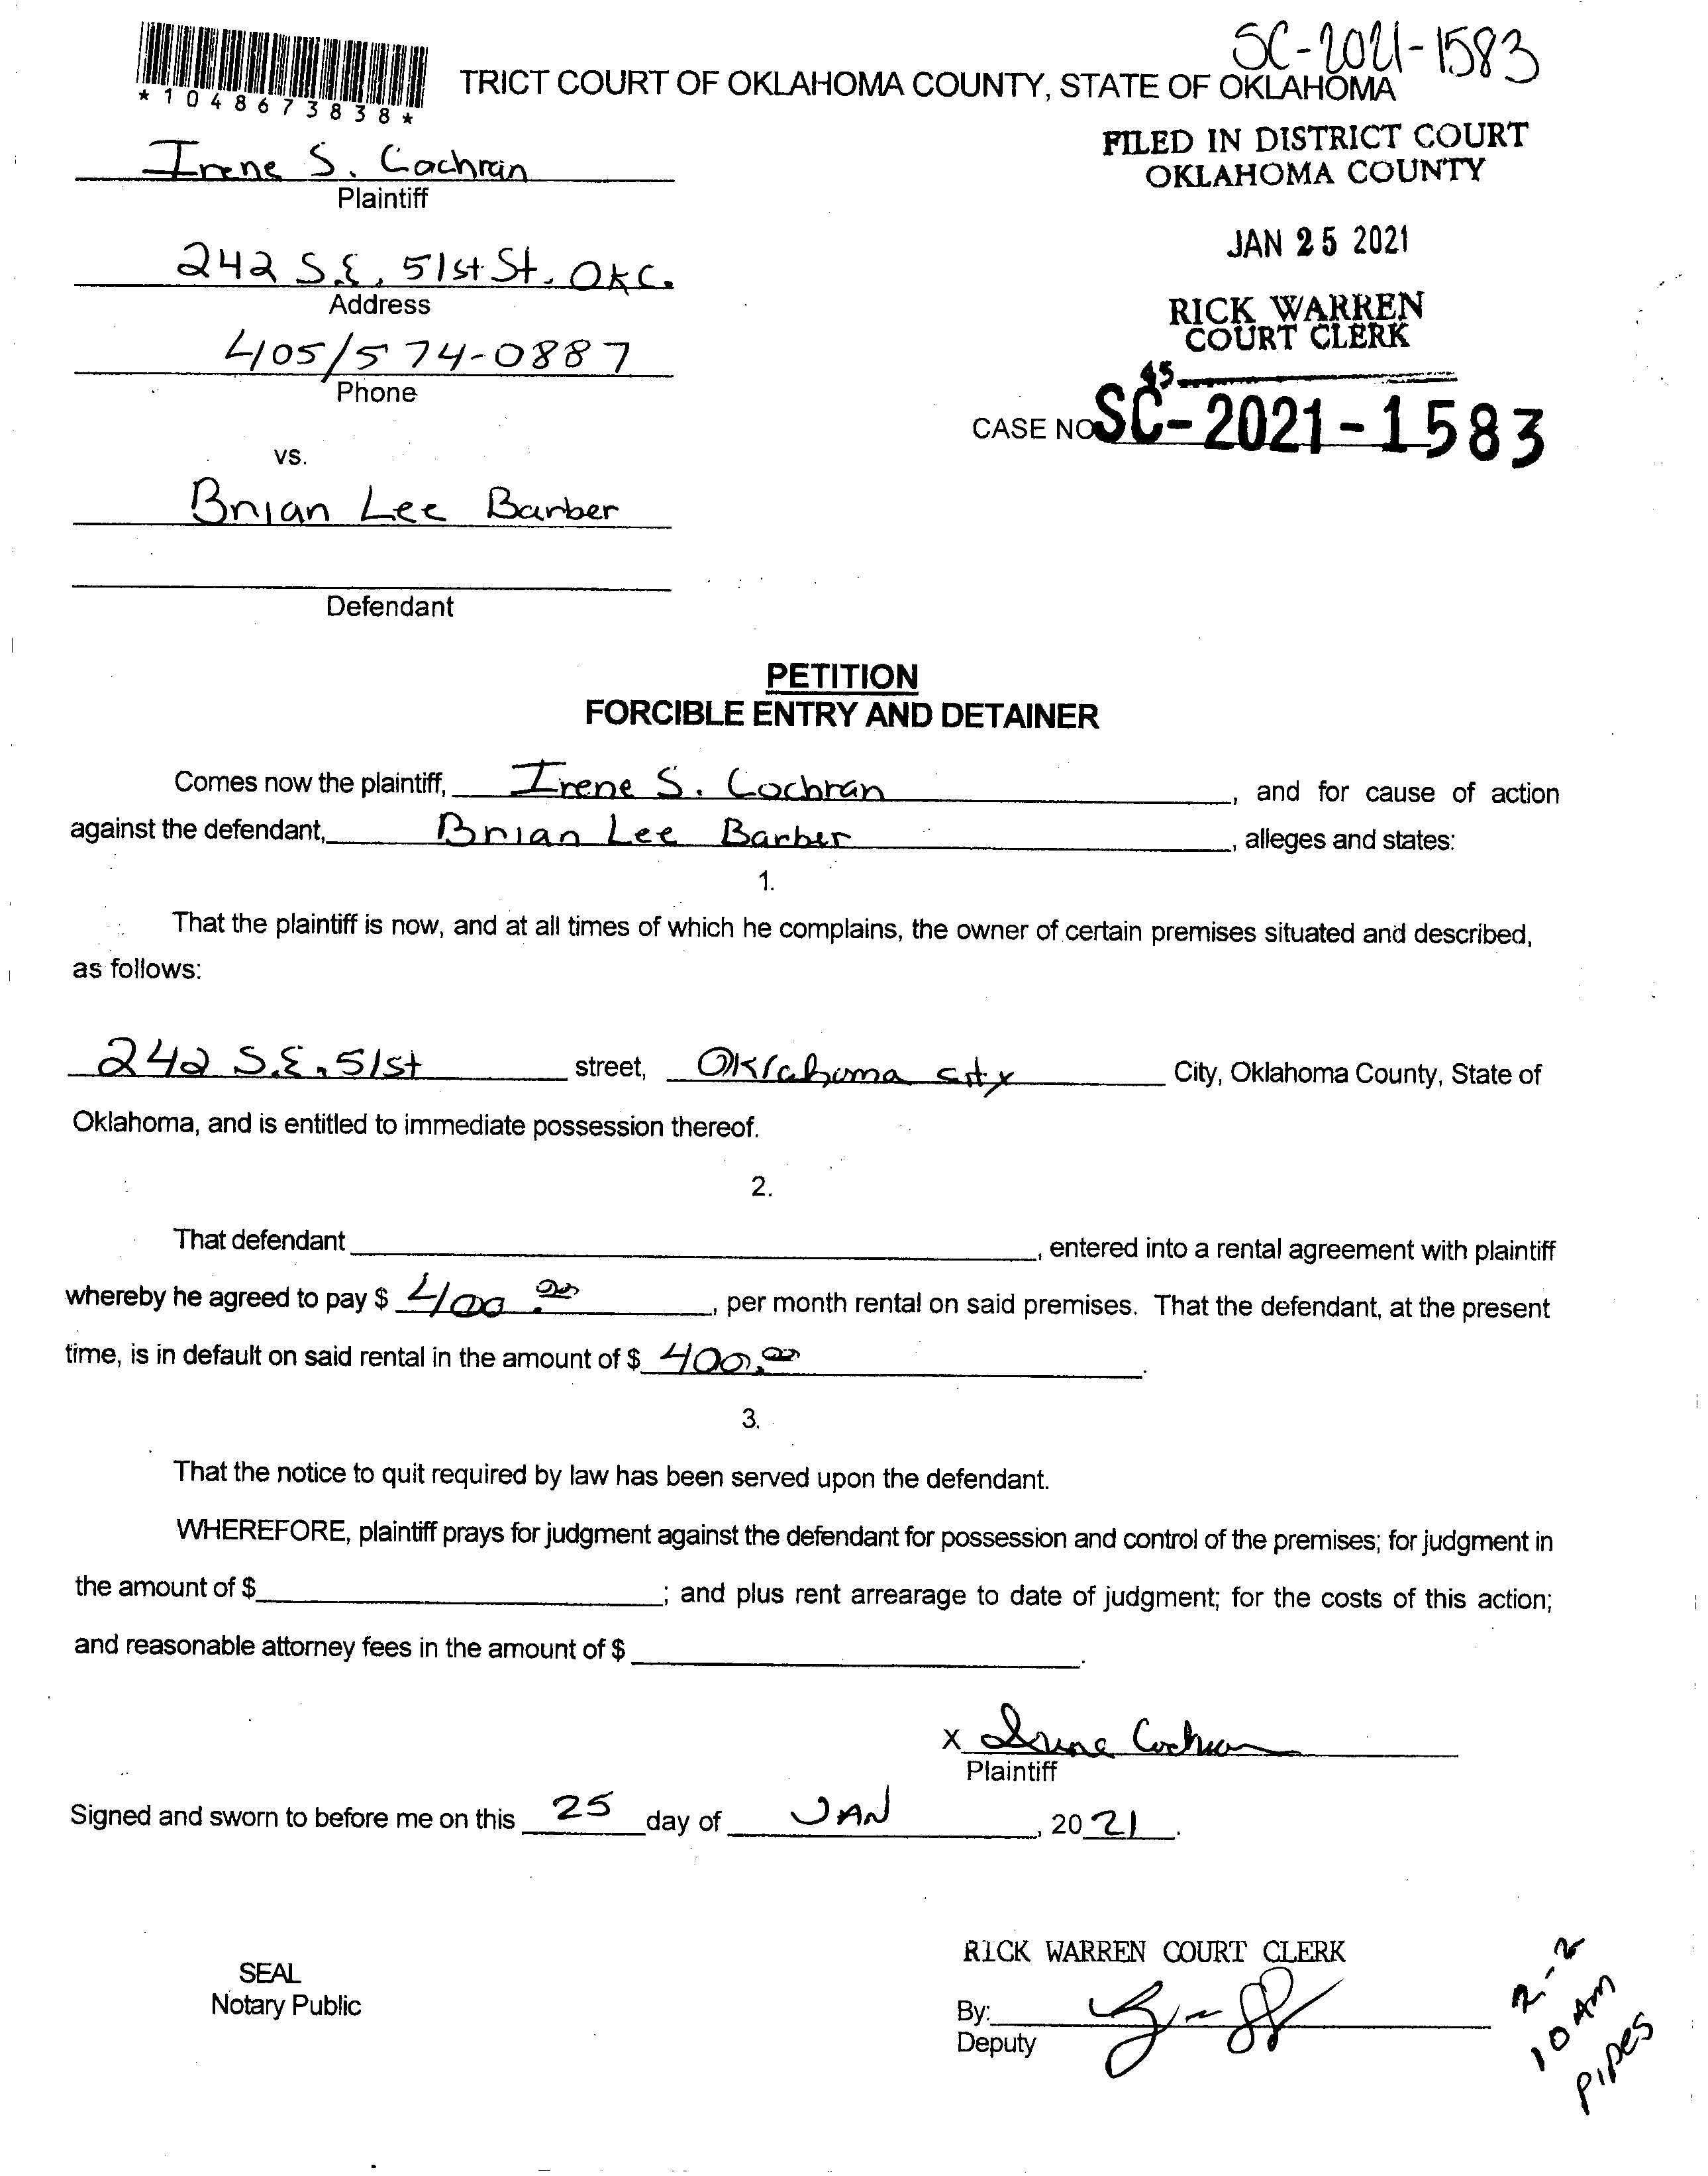 SC-2021-1583
*1048673838*
TRICT COURT OF OKLAHOMA COUNTY, STATE OF OKLAHOMA
FILED IN DISTRICT COURT
OKLAHOMA COUNTY
Irene S. Cochran
Plaintiff
JAN 25 2021
242 S.E, 51st St. OKC.
Address
RICK WARREN
COURT CLERK
405/574-0887
Phone
45
CASE NO SC-2021-1583
vs.
Brian Lee Barber
Defendant
PETITION
FORCIBLE ENTRY AND DETAINER
Comes now the plaintiff, Irene S. Cochran, and for cause of action
against the defendant, Brian Lee Barber, alleges and states:
1.
That the plaintiff is now, and at all times of which he complains, the owner of certain premises situated and described,
as follows:
242 S.E. 51st street, Oklahoma city City, Oklahoma County, State of
Oklahoma, and is entitled to immediate possession thereof.
2.
That defendant , entered into a rental agreement with plaintiff
whereby he agreed to pay $ 400.00, per month rental on said premises. That the defendant, at the present
time, is in default on said rental in the amount of $ 400.00.
3.
That the notice to quit required by law has been served upon the defendant.
WHEREFORE, plaintiff prays for judgment against the defendant for possession and control of the premises; for judgment in
the amount of $ ; and plus rent arrearage to date of judgment; for the costs of this action;
and reasonable attorney fees in the amount of $ .
X Irene Cochran
Plaintiff
Signed and sworn to before me on this 25 day of JAN, 2021.
RICK WARREN COURT CLERK
SEAL
Notary Public
By:
Deputy
2-2
10 AM
PIPES